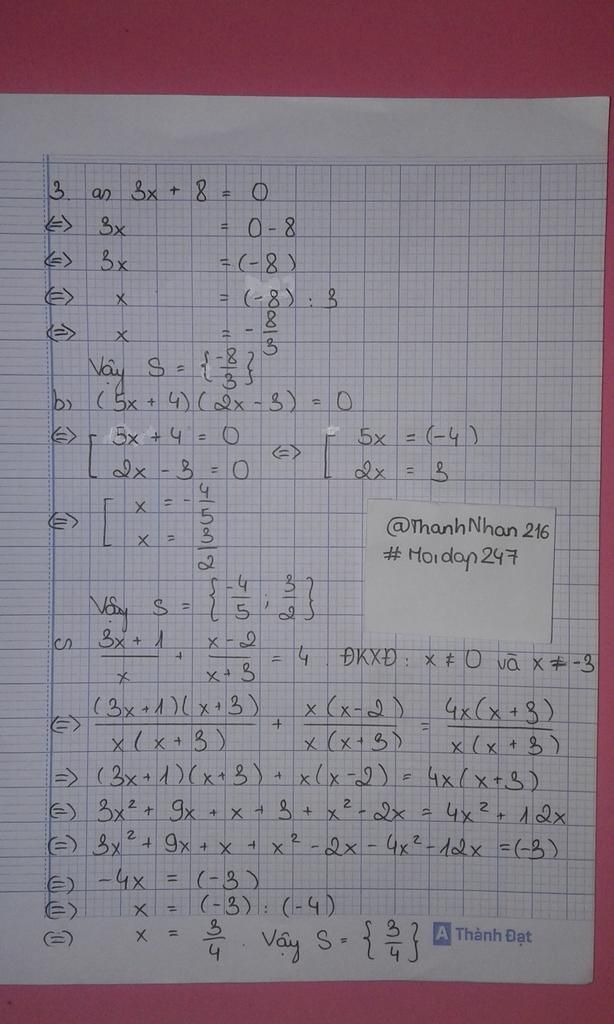 3. a) 3x + 8 = 0
⇔ 3x = 0 - 8
⇔ 3x = (-8)
⇔ x = (-8) : 3
⇔ x = -8/3
Vậy S = {-8/3}
b) (5x + 4)(2x - 3) = 0
⇔ [ 5x + 4 = 0 ⇔ [ 5x = (-4)
2x - 3 = 0 2x = 3
⇔ [ x = -4/5
x = 3/2
@ThanhNhan216
# Hoidap247
Vậy S = {-4/5 ; 3/2}
c) (3x + 1)/x + (x - 2)/(x + 3) = 4. ĐKXĐ : x ≠ 0 và x ≠ -3
⇔ (3x + 1)(x + 3)/x(x + 3) + x(x - 2)/x(x + 3) = 4x(x + 3)/x(x + 3)
⇒ (3x + 1)(x + 3) + x(x - 2) = 4x(x + 3)
⇔ 3x² + 9x + x + 3 + x² - 2x = 4x² + 12x
⇔ 3x² + 9x + x + x² - 2x - 4x² - 12x = (-3)
⇔ -4x = (-3)
⇔ x = (-3) : (-4)
⇔ x = 3/4. Vậy S = {3/4}
A Thành Đạt